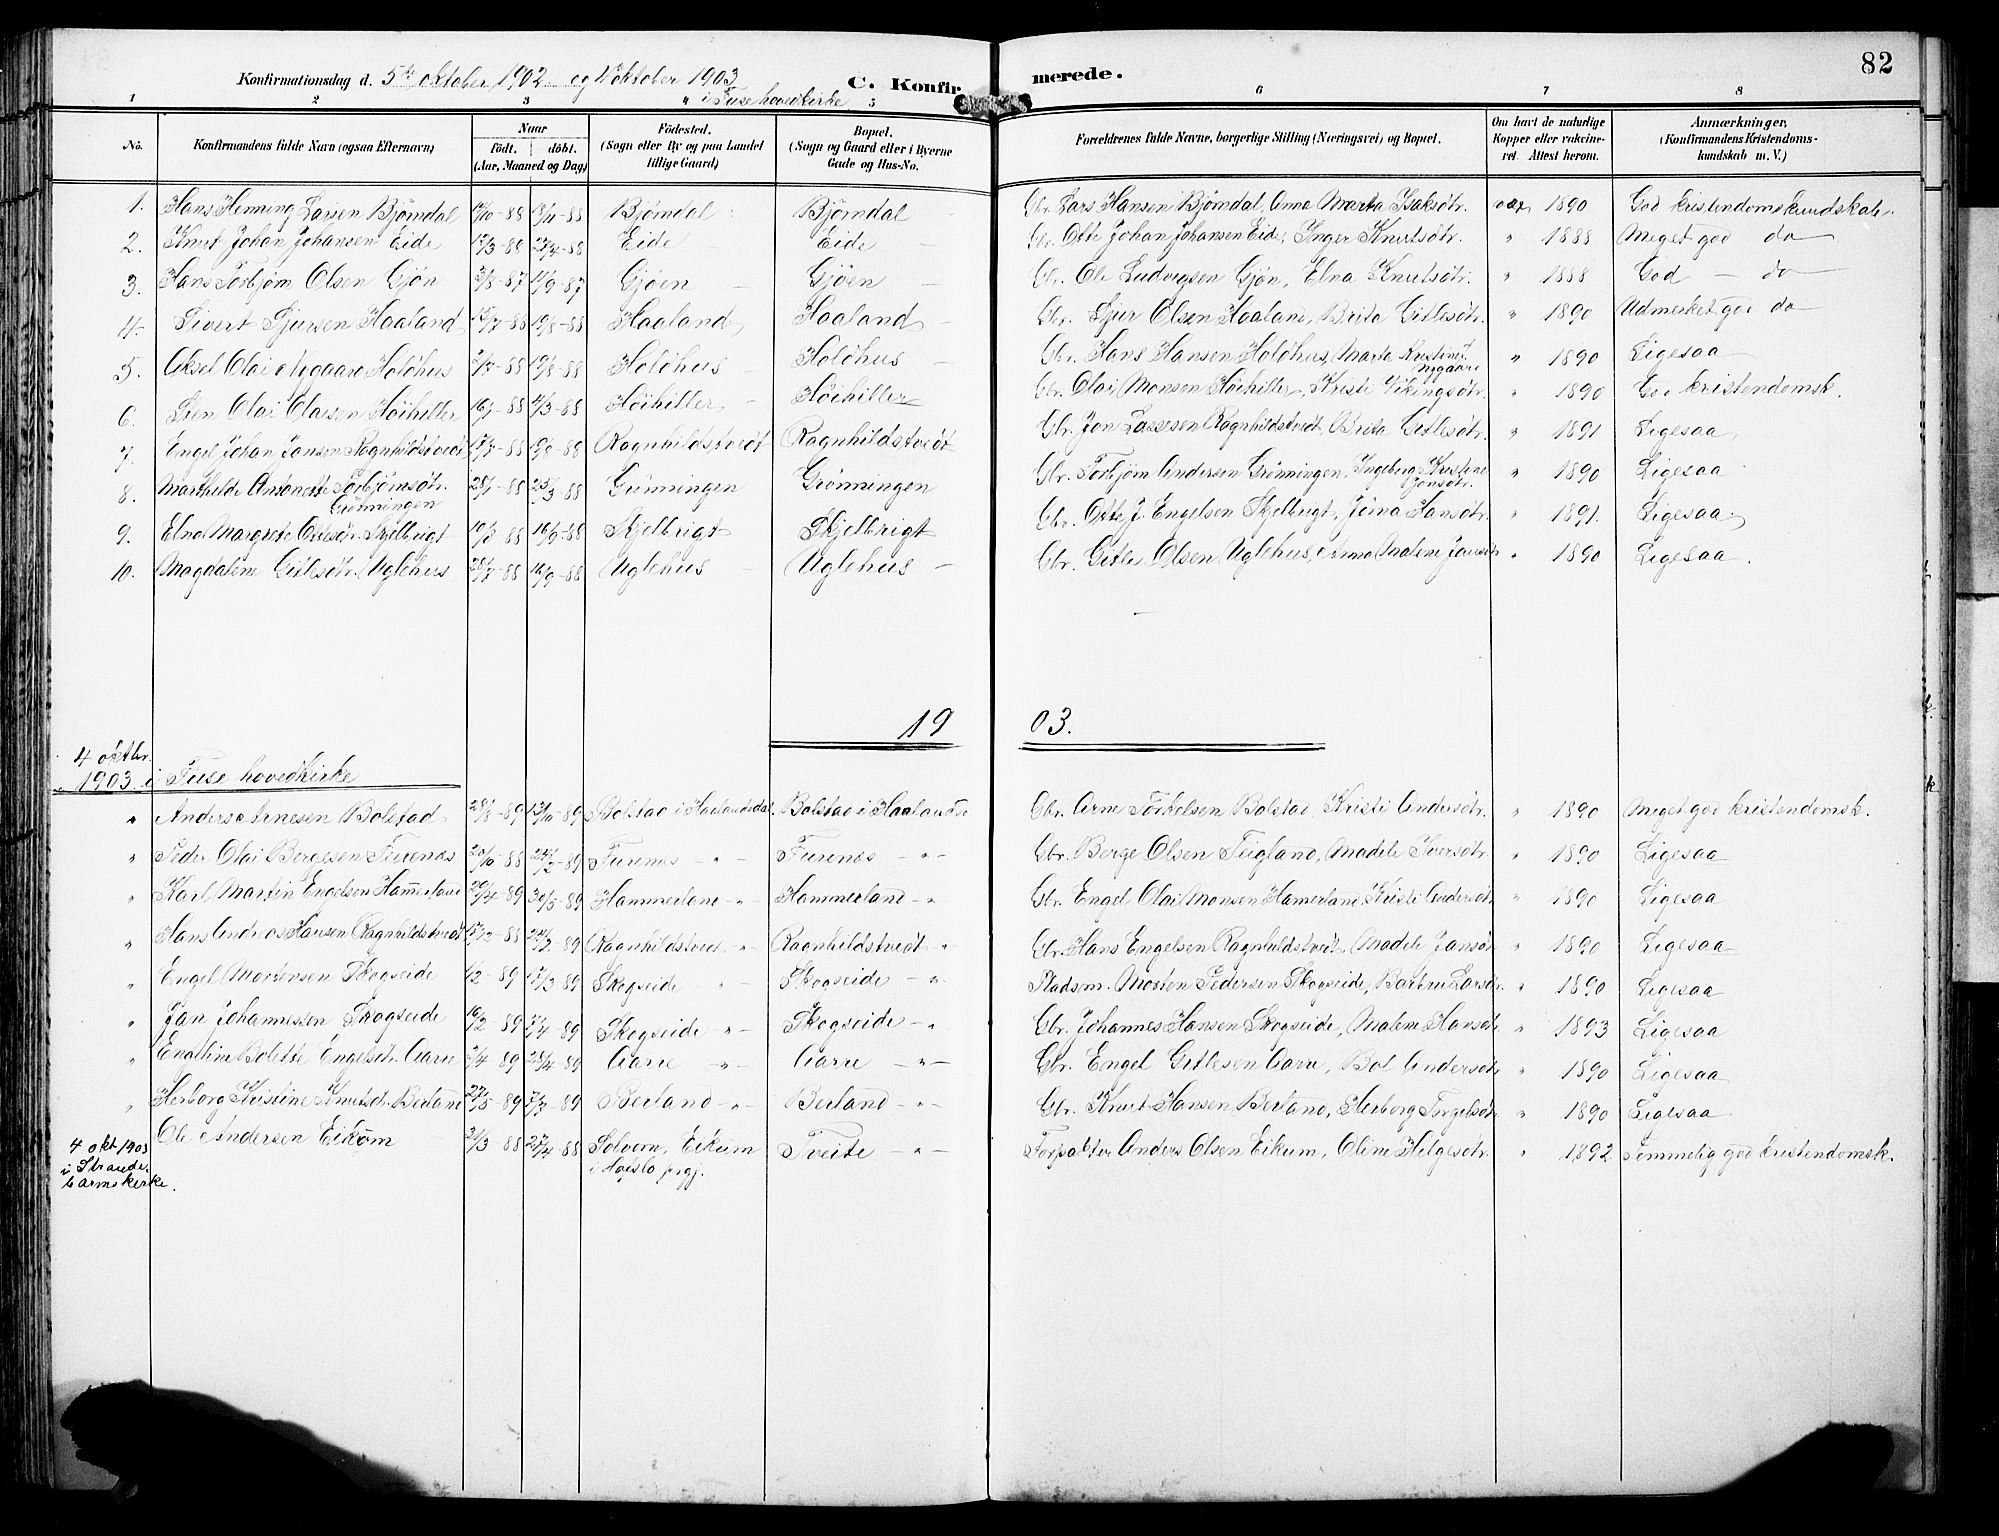 82
Konfirmationsdag d. 5te oktober 1902 og 4 oktober 1903 C. Konfirmerede.
i Fuse hovedkirke
1 2 3 4 5 6 7 8
No. Konfirmandens fulde Navn (ogsaa Efternavn) Naar født. døbt. (Aar, Maaned og Dag) Fødested. (Sogn eller By og paa Landet tillige Gaard) Bopæl. (Sogn og Gaard eller i Byerne Gade og Hus-No. Forældrenes fulde Navne, borgerlige Stilling (Næringsvei) og Bopæl. Om havt de naturlige Kopper eller vakcineret. Attest herom. Anmærkninger, (Konfirmandens Kristendomskundskab m. V.)
1. Hans Henning Larsen Bjørndal 88 88 Bjørndal Bjørndal Gbr. Lars Hansen Bjørndal, Anna Marta Isaksdtr. vax 1890 God kristendomskundskab.
2. Knut Johan Johansen Eide 17/3-88 88 Eide Eide Gbr. Otte Johan Johansen Eide, Inger Knutsdtr. " 1888 Meget god do
3. Hans Torbjørn Olsen Gjøn 3/8-87 11/9-87 Gjøen Gjøen Gbr. Ole Ludvigsen Gjøn, Elna Knutsdtr. " 1888 God do
4. Sivert Sjursen Haaland 88 88 Haaland Haaland Gbr. Sjur Olsen Haaland, Brita Gitlesdtr. " 1890 Udmerket god do
5. Aksel Olai Nygaard Holdhus 88 19/8-88 Holdhus Holdhus Gbr. Hans Hansen Holdhus, Marta Kristine Nygaard " 1890 Ligesaa
6. Olai Olaisen Høihiller 16/1-88 4/3-88 Høihiller Høihiller Gbr. Olai Monsen Høihiller, Kristi Vikingsdtr. " 1890 God kristendomsk.
7. Engel Johan Jonsen Ragnhildstvedt 88 88 Ragnhildstvedt Ragnhildstvedt Gbr. Jon Lassesen Ragnhildstvedt, Brita Gitlesdtr. " 1891 Ligesaa
8. Marthilde Antonette Torbjørnsdtr. Grønningen 28/1-88 25/3-88 Grønningen Grønningen Gbr. Torbjørn Andersen Grønningen, Ingeborg Kristine Jonsdtr. " 1890 Ligesaa
9. Elna Margrete Ottesdtr. Skjelbrigt 88 16/9-88 Skjelbrigt Skjelbrigt Gbr. Otte J. Engelsen Skjelbrigt, Jørna Hansdtr. " 1891. Ligesaa
10. Magdalene Gitlesdtr. Uglehus 28/7-88 16/9-88 Uglehus Uglehus Gbr. Gitle Olsen Uglehus, Anna Malene Jansdtr " 1890 Ligesaa.
1903.
4 oktbr.
1903 i Fuse hovedkirke
" Anders Arnesen Bolstad 28/8-89 13/10-89 Bolstad i Haalandsdal. Bolstad i Haalandsd Gbr. Arne Torkelsen Bolstad, Kristi Andersdtr. " 1890 Meget god kristendomsk.
" Peder Olai Bergesen Furenæs 88 24/2-89 Furenæs - " - Furenæs - " - Gbr. Berge Olsen Teigland, Madele Iversdtr. " 1890 Ligesaa
" Karl Martin Engelsen Hammerland 89 30/5-89 Hammerland - " - Hammerland - " - Gbr. Engel Olai Monsen Hamerland, Kristi Andersdtr " 1890 Ligesaa
" Hans Andreas Hansen Ragnhildstvedt 17/12-88 24/2-89 Ragnhildstvedt - " - Ragnhildstvedt - " Gbr. Hans Engelsen Ragnhildstvedt, Madele Jansdtr " 1890 Ligesaa
" Engel Mortensen Skogseide 89 17/3-89 Skogseide - " - Skogseide - " - Pladsm. Morten Pedersen Skogseide, Barbru Larsdtr. " 1890 Ligesaa
" Jan Johannessen Skogseide 16/2-89 89 Skogseide - " - Skogseide - " - Gbr. Johannes Hansen Skogseide, Malene Hansdtr " 1893 Ligesaa
" Engeline Bolette Engelsdtr. Aarre 3/4 89 28/4-89 Aarre - " - Aarre - " - Gbr. Engel Gitlesen Aarre, Bol Andersdtr " 1890 Ligesaa
" Herborg Kristine Knutsdt. Berland 89 89 Berland - " - Berland - " - Gbr. Knut Hansen Berland, Herborg Torgelsdtr " 1890 Ligesaa
4 okt 1903 i Strandebarms kirke. Ole Andersen Eikum 31/3-88 27/4-88 Solvorn, Eikum i Hafslo prgj. Tveite - " - Forpakter Anders Olsen Eikum, Oline Helgesdtr. " 1892 Temmelig god kristendomsk.